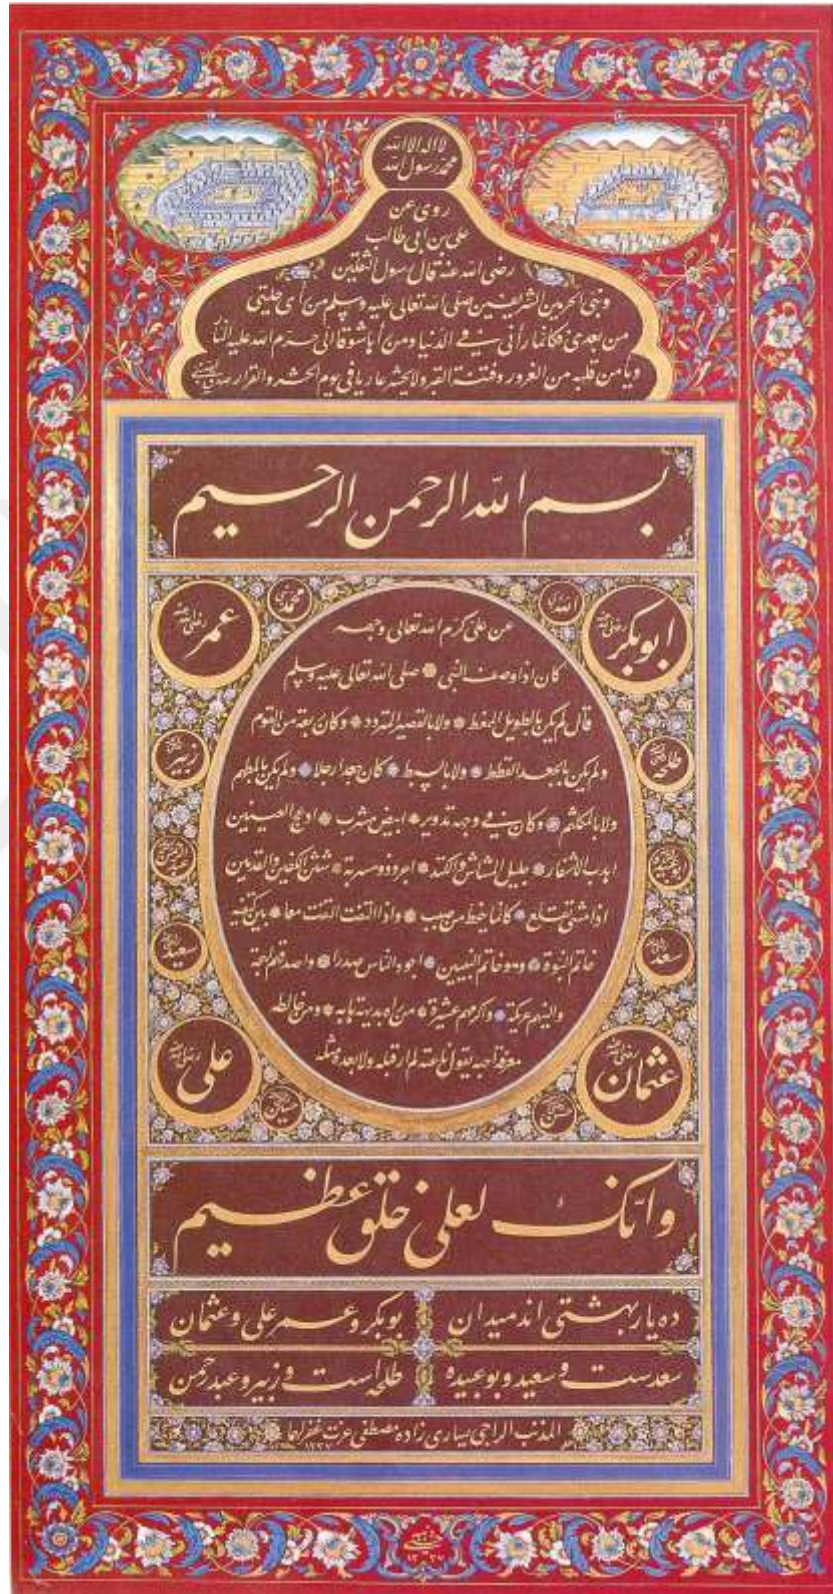 لا اله الا الله
محمد رسول الله
روى عن
على بن ابى طالب
رضى الله عنه قال رسول الثقلين
ونبى الحرمين الشريفين صلى الله تعالى عليه وسلم من رأى حليتى
من بعدى فكانما رأنى فى الدنيا ومن رأها شوقا الى حرم الله عليه النار
ويأمن قلبه من الغرور وفتنة القبر ولا يحشر عاريا فى يوم الحشر والقرار
بسم الله الرحمن الرحيم
الله
محمد
ابوبكر رضى الله عنه
عمر رضى الله عنه
عن على كرم الله تعالى وجهه
كان اذا وصف النبى صلى الله تعالى عليه وسلم
قال لم يكن بالطويل الممغط ولا بالقصير المتردد وكان ربعة من القوم
ولم يكن بالجعد القطط ولا بالسبط كان جعدا رجلا ولم يكن بالمطهم
ولا بالمكلثم وكان فى وجهه تدوير ابيض مشرب ادعج العينين
اهدب الاشفار جليل المشاش والكتد اجرد ذو مسربة شثن الكفين والقدمين
اذا مشى تقلع كانما يخط من صبب واذا التفت التفت معا بين كتفيه
خاتم النبوة وهو خاتم النبيين اجود الناس صدرا واصدقهم لهجة
والينهم عريكة واكرمهم عشيرة من راه بديهة هابه ومن خالطه
معرفة احبه يقول ناعته لم ار قبله ولا بعده مثله
طلحه
زبير
سعد
سعيد
عثمان رضى الله عنه
على رضى الله عنه
حسن
حسين
وانك لعلى خلق عظيم
ده يار بهشتى اند ميدان
بوبكر وعمر على وعثمان
سعدست وسعيد وبوعبيده
طلحه است وزبير وعبدرحمن
المذنب الراجى يسارى زاده مصطفى عزت غفر لهما